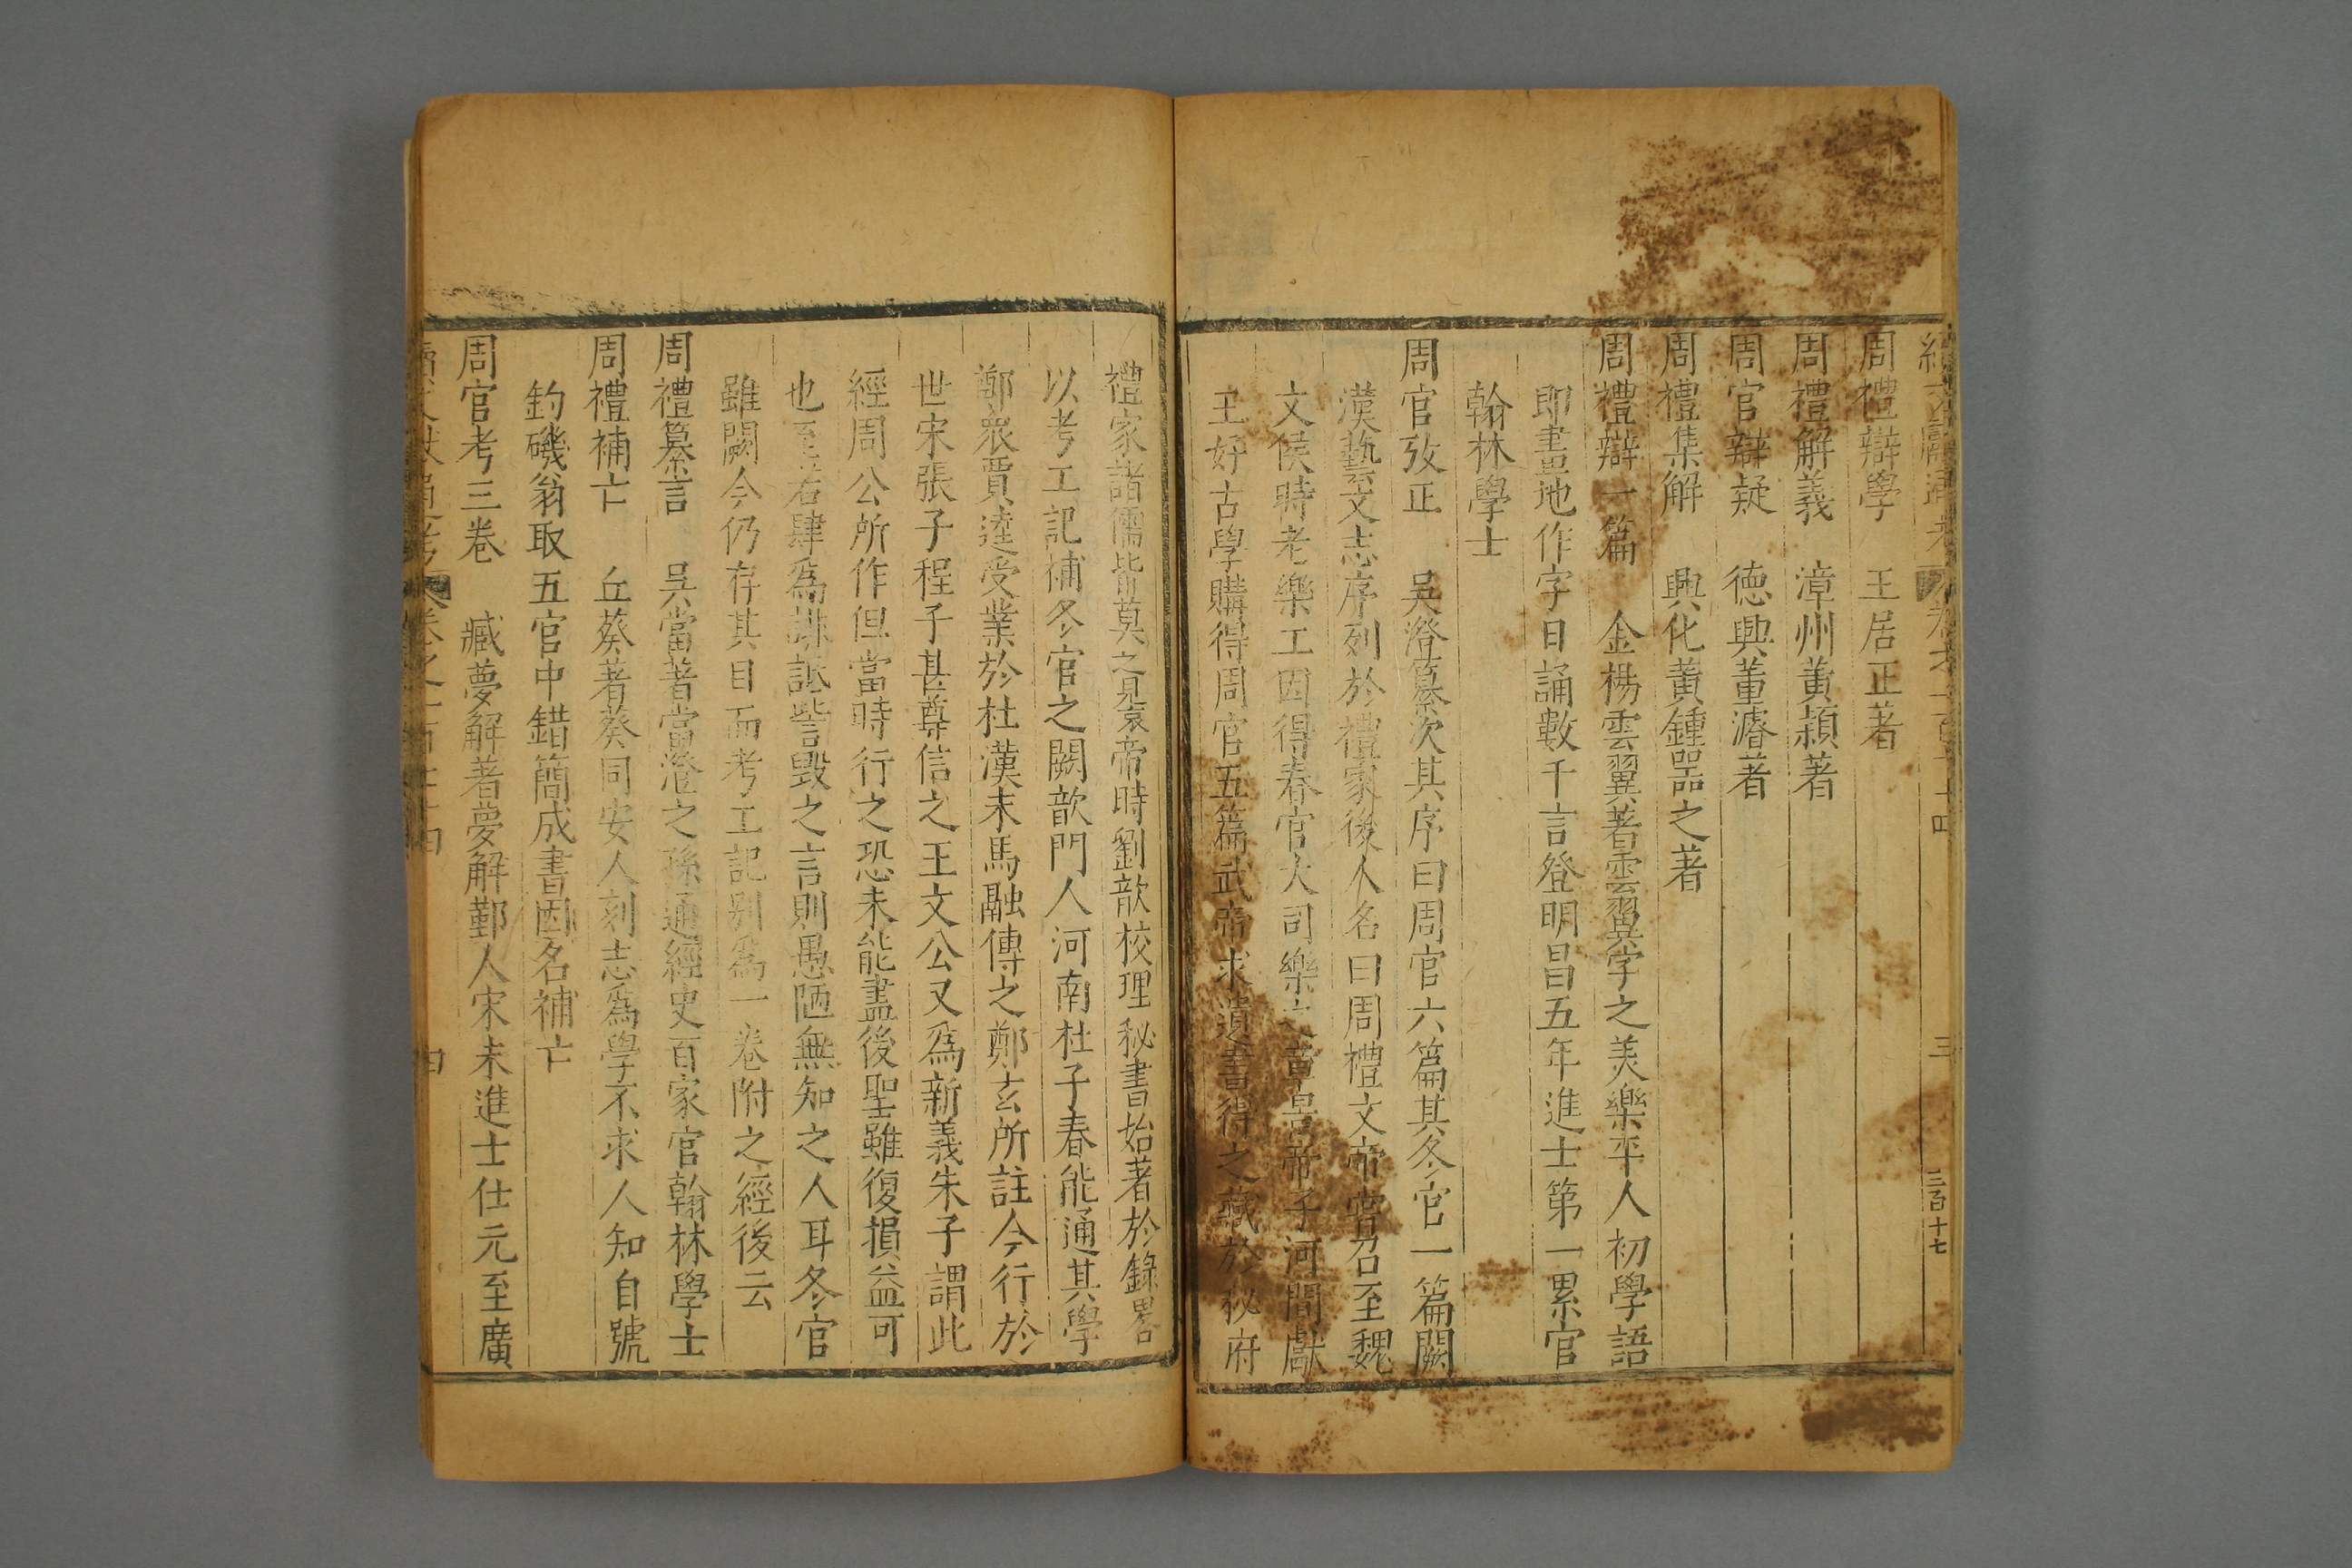 周禮辯學　王居正著
周禮解義　漳州黃穎著
周官辯疑　德興董濬著
周禮集解　興化黃鍾噐之著
周禮辯一篇　金楊雲翼著雲翼字之美樂平人初學語
即畫地作字日誦數千言登明昌五年進士第一累官
翰林學士
周官攷正　吳澄纂次其序曰周官六篇其冬官一篇闕
漢藝文志序列於禮家後人名曰周禮文帝嘗召至魏
文侯時老樂工因得春官大司樂之章景帝子河間獻
王好古學購得周官五篇武帝求遺書得之藏於秘府
禮家諸儒皆莫之見哀帝時劉歆校理秘書始著於錄畧
以考工記補冬官之闕歆門人河南杜子春能通其學
鄭衆賈逵受業於杜漢末馬融傳之鄭玄所註今行於
世宋張子程子甚尊信之王文公又爲新義朱子謂此
經周公所作但當時行之恐未能盡後聖雖復損益可
也至若肆爲詆訾毀之言則愚陋無知之人耳冬官
雖闕今仍存其目而考工記別爲一卷附之經後云
周禮纂言　吳當著當澄之孫通經史百家官翰林學士
周禮補亡　丘葵著葵同安人刻志爲學不求人知自號
釣磯翁取五官中錯簡成書因名補亡
周官考三卷　臧夢解著夢解鄞人宋末進士仕元至廣